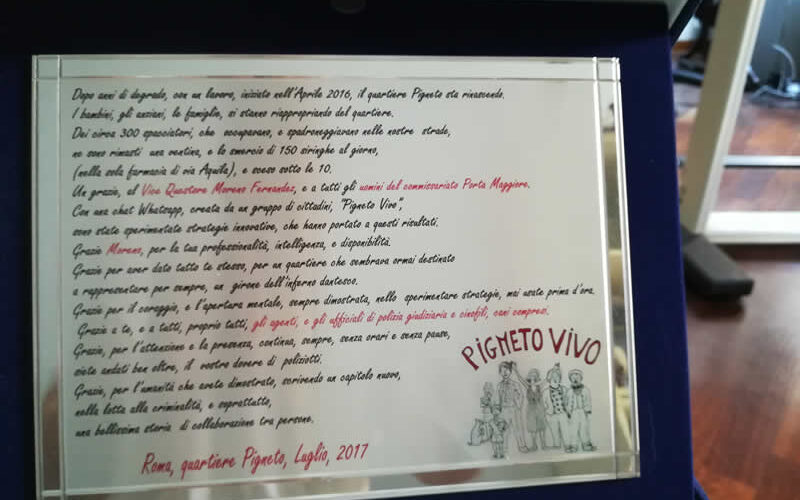 Dopo anni di degrado, con un lavoro, iniziato nell'Aprile 2016, il quartiere Pigneto sta rinascendo.
I bambini, gli anziani, le famiglie, si stanno riappropriando del quartiere.
Dei circa 300 spacciatori, che occupavano, e spadroneggiavano nelle nostre strade,
ne sono rimasti una ventina, e lo smercio di 150 siringhe al giorno,
(nella sola farmacia di via Aquila), e sceso sotto le 10.
Un grazie, al Vice Questore Moreno Fernandez, e a tutti gli uomini del commissariato Porta Maggiore.
Con una chat Whatsapp, creata da un gruppo di cittadini, "Pigneto Vivo",
sono state sperimentate strategie innovative, che hanno portato a questi risultati.
Grazie Moreno, per la tua professionalità, intelligenza, e disponibilità.
Grazie per aver dato tutto te stesso, per un quartiere che sembrava ormai destinato
a rappresentare per sempre, un girone dell'inferno dantesco.
Grazie per il coraggio, e l'apertura mentale, sempre dimostrata, nello sperimentare strategie, mai usate prima d'ora.
Grazie a te, e a tutti, proprio tutti, gli agenti, e gli ufficiali di polizia giudiziaria e cinofili, cani compresi.
Grazie, per l'attenzione e la presenza, continua, sempre, senza orari e senza pause,
siete andati ben oltre, il vostro dovere di poliziotti.
Grazie, per l'umanità che avete dimostrato, scrivendo un capitolo nuovo,
nella lotta alla criminalità, e soprattutto,
una bellissima storia di collaborazione tra persone.
PIGNETO VIVO
Roma, quartiere Pigneto, Luglio, 2017